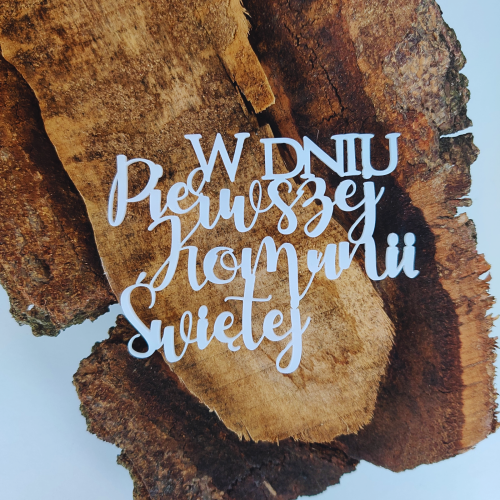 W DNIU
Pierwszej
Komunii
Świętej